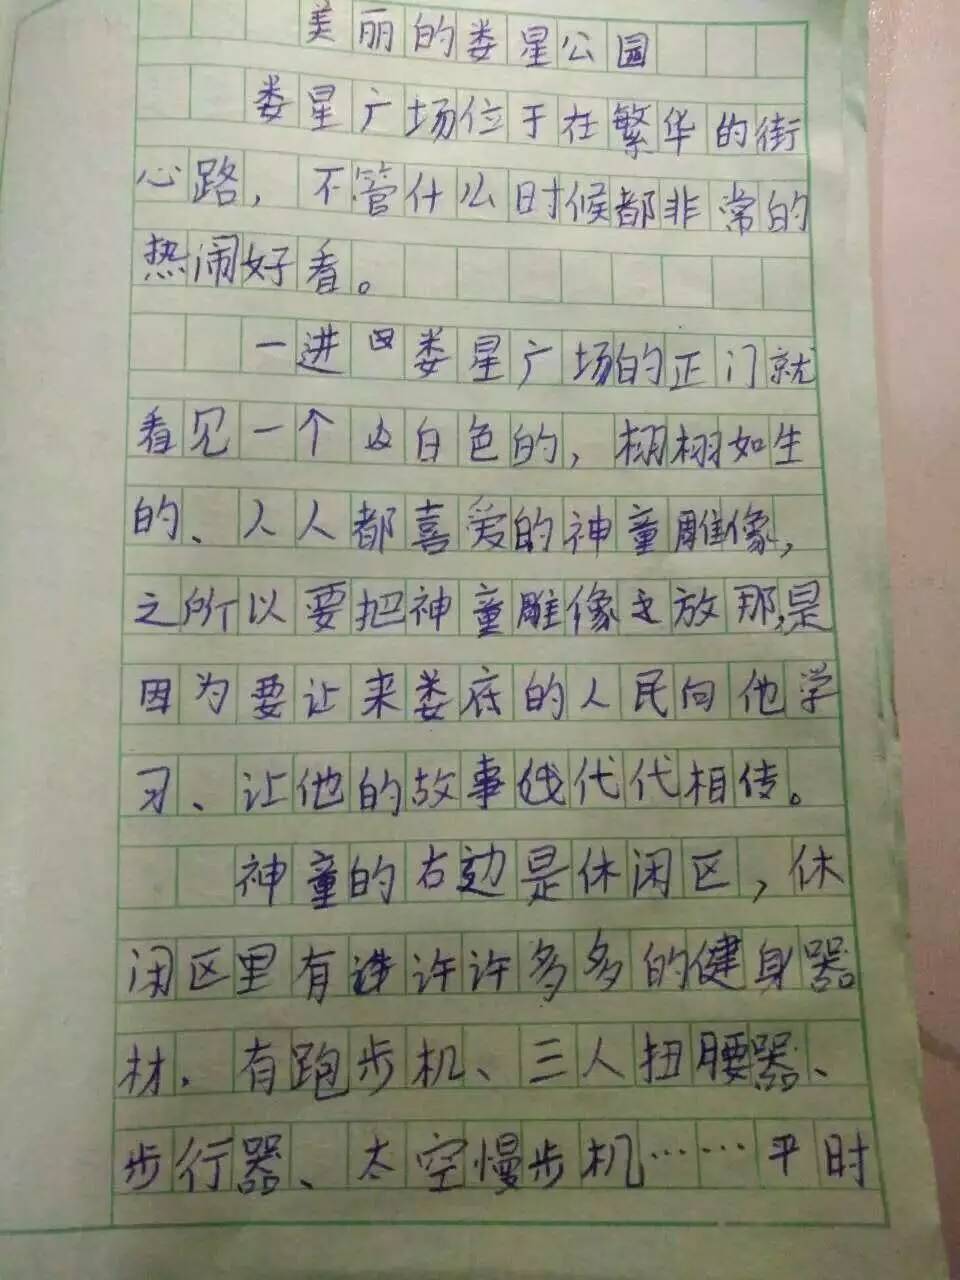 美丽的娄星公园
娄星广场位于在繁华的街
心路，不管什么时候都非常的
热闹好看。
一进娄星广场的正门就
看见一个白色的，栩栩如生
的、人人都喜爱的神童雕像，
之所以要把神童雕像放那，是
因为要让来娄底的人民向他学
习、让他的故事代代相传。
神童的右边是休闲区，休
闲区里有许许多多的健身器
材．有跑步机、三人扭腰器、
步行器、太空慢步机……平时